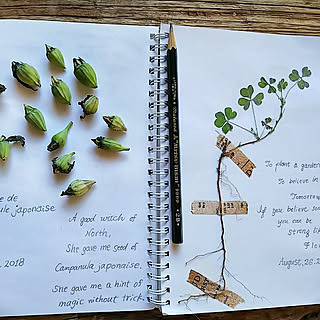 de
ule japonaise
2018
A good witch of
North,
She gave me seed of
Campanula japonaise.
She gave me a hint of
magic without trick.
To plant a garden
To believe in
Tomorrow
If you believe som
you can be
strong lik
Flo
August, 26. 2
2B